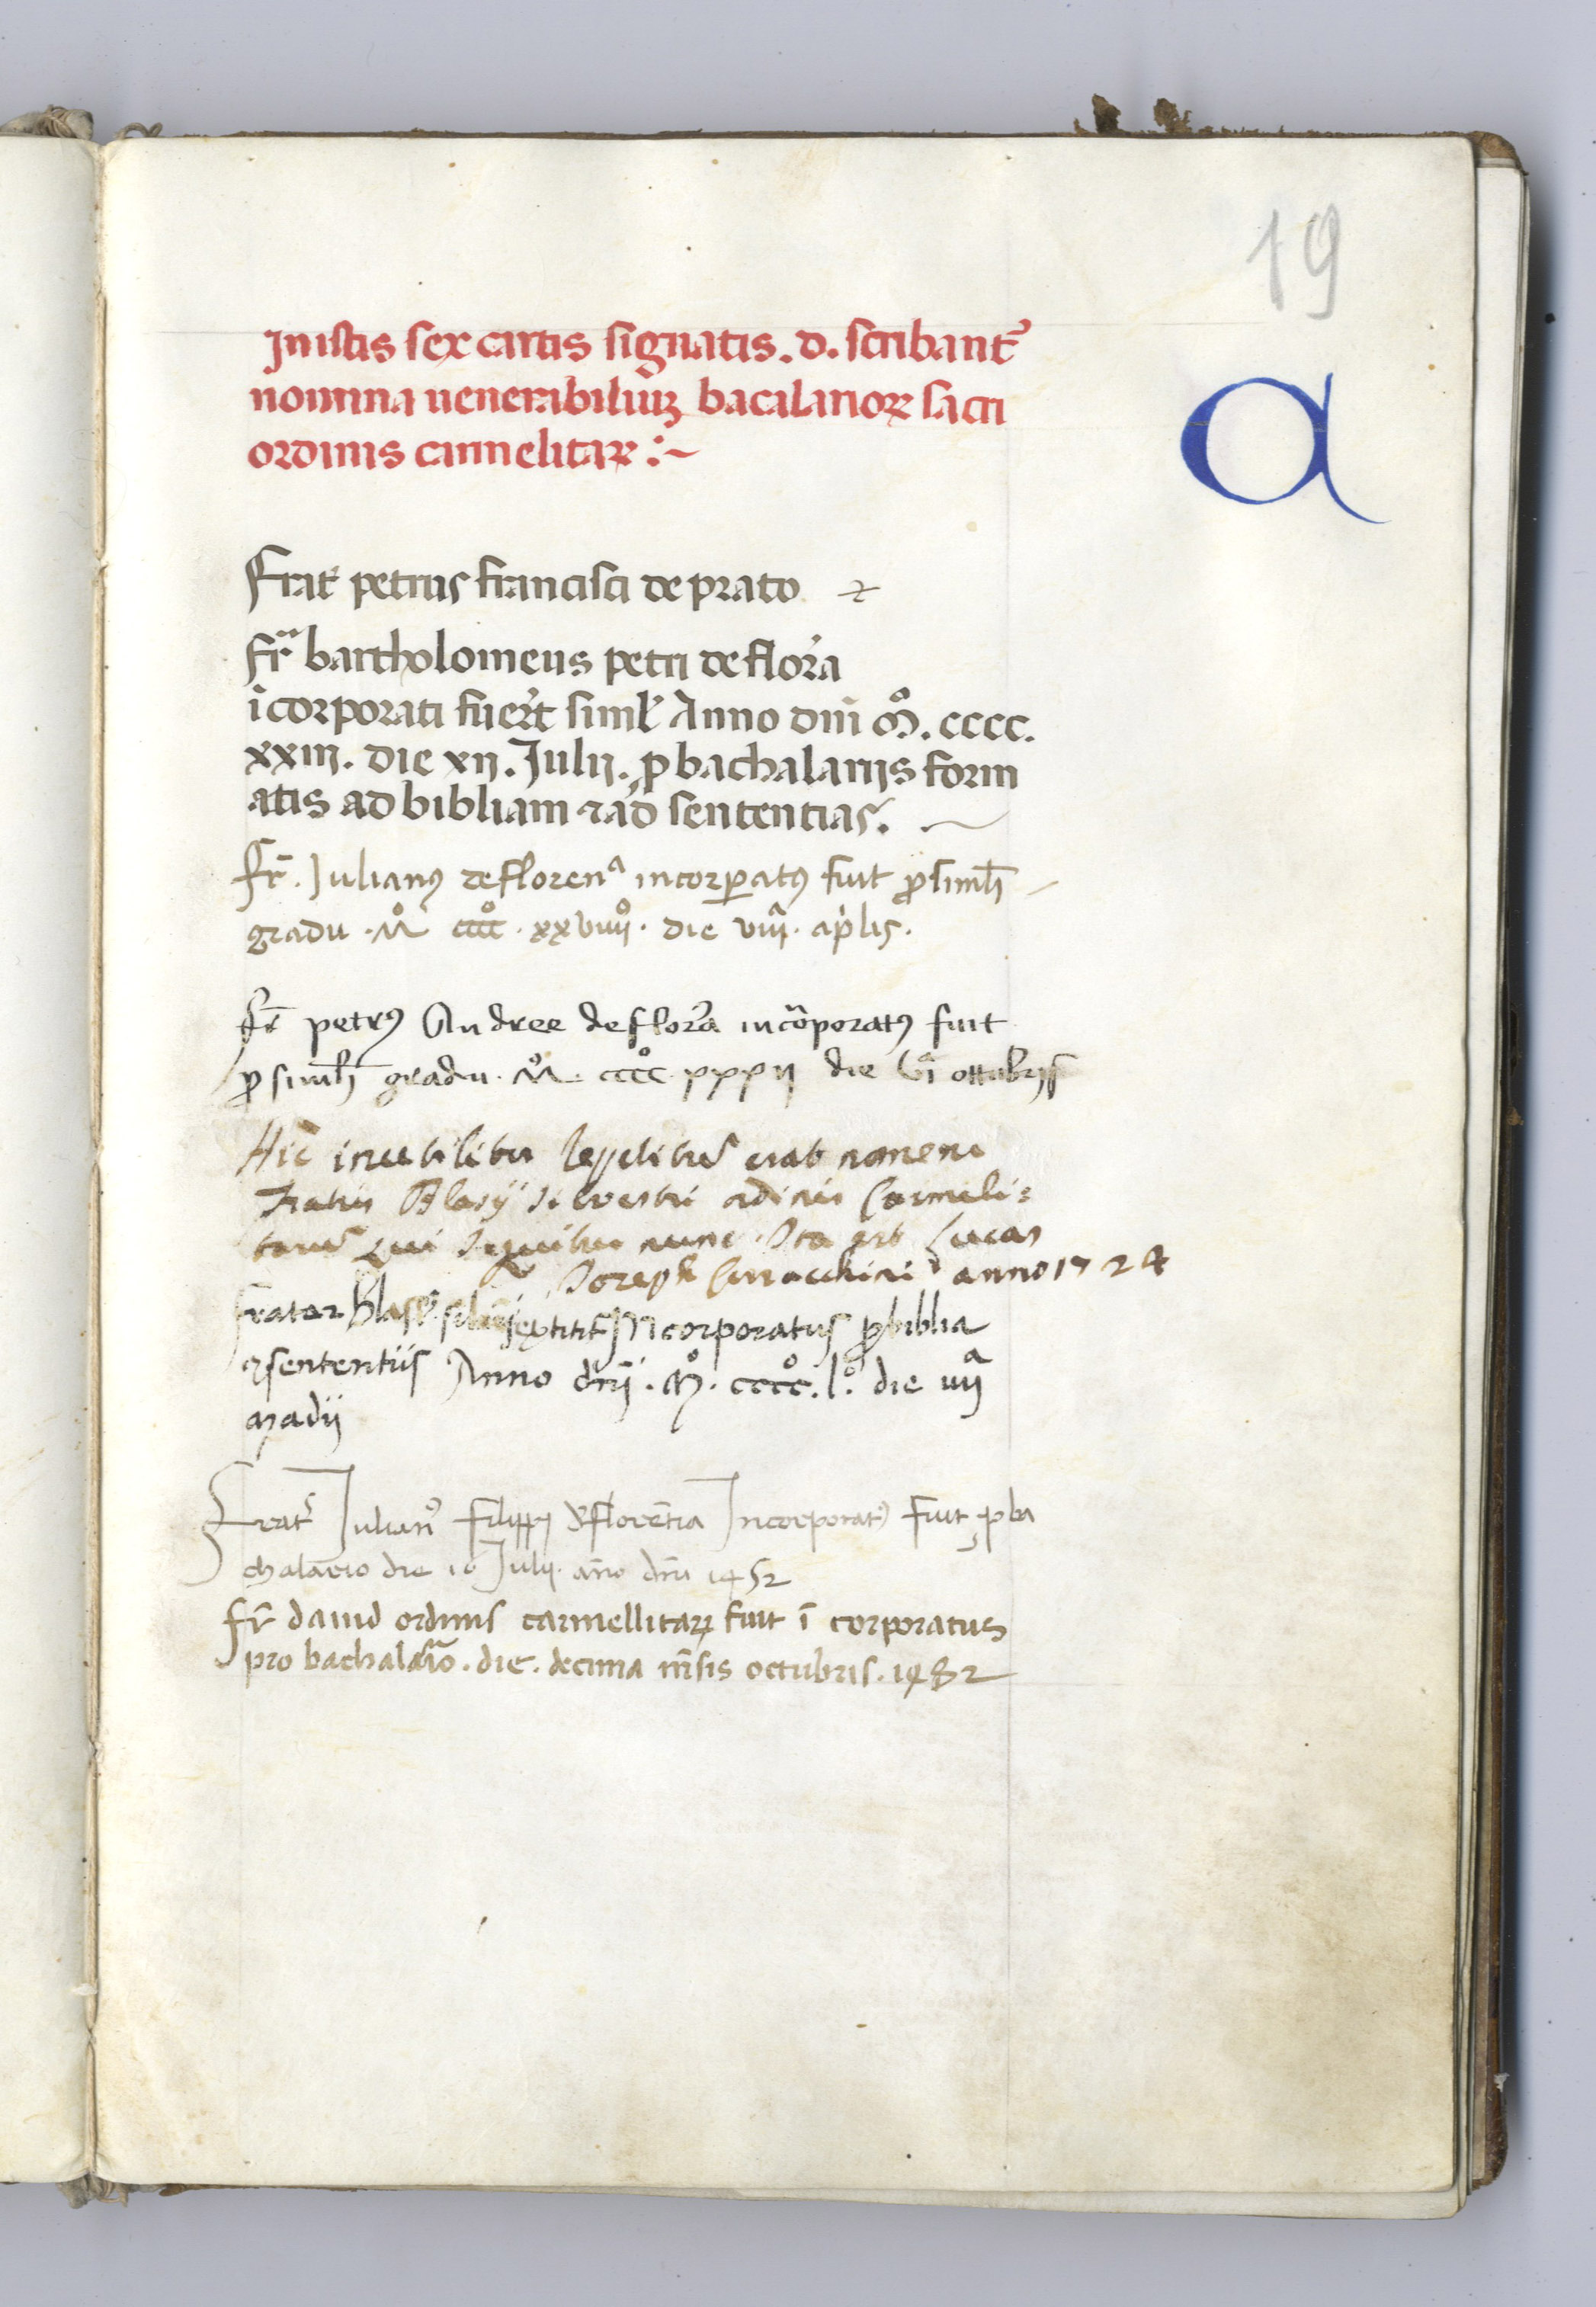 19
In istis sex cartis signatis . d . scribant᷑
nomina uenerabiliuꝫ bacalarioꝝ sacri
ordinis carmelitaꝝ :~
a
Frat᷑ petrus francisci de prato
fr̃ bartholomeus petri de flor̃a
ĩcorporati fuer̃t simł Anno dñi mͦ. cccc.
xxiii. die xii. Julii. ꝓ bachalariis form
atis ad bibliam ⁊ ad sententias.
fr̃. Julianꝯ de florenᵃ incorꝑatꝯ fuit ꝓ simłi
gradu . Mͦ ccccͦ . xxviiiiͦ . die viiiᵃ . ap̃lis .
fr̃ petrꝯ Andree de flor̃a incõporatꝯ fuit
ꝓ simłi gradu . Mͦ . ccccͦ . xxxii die viᵃ ottubris
Hic erat nomen
Fratris Blasij Silvestri ordinis Carmeli=
tarum qui nunc Lucas
Joseph anno 1724
frater blasiꝯ Incorporatus ꝓ biblia
⁊ sententiis Anno dñi . Mͦ . ccccͦ . lͦ . die viiᵃ
madii
Frat᷑ Julianꝯ Filippi de florẽtia Incorporatꝯ fuit ꝓ ba
chalario die 10 Julii . año dñi 1452
fr̃ dauid ordinis carmellitaꝝ fuit ĩ corporatus
pro bachalar̃io . die . decima m̃sis octubris . 1482